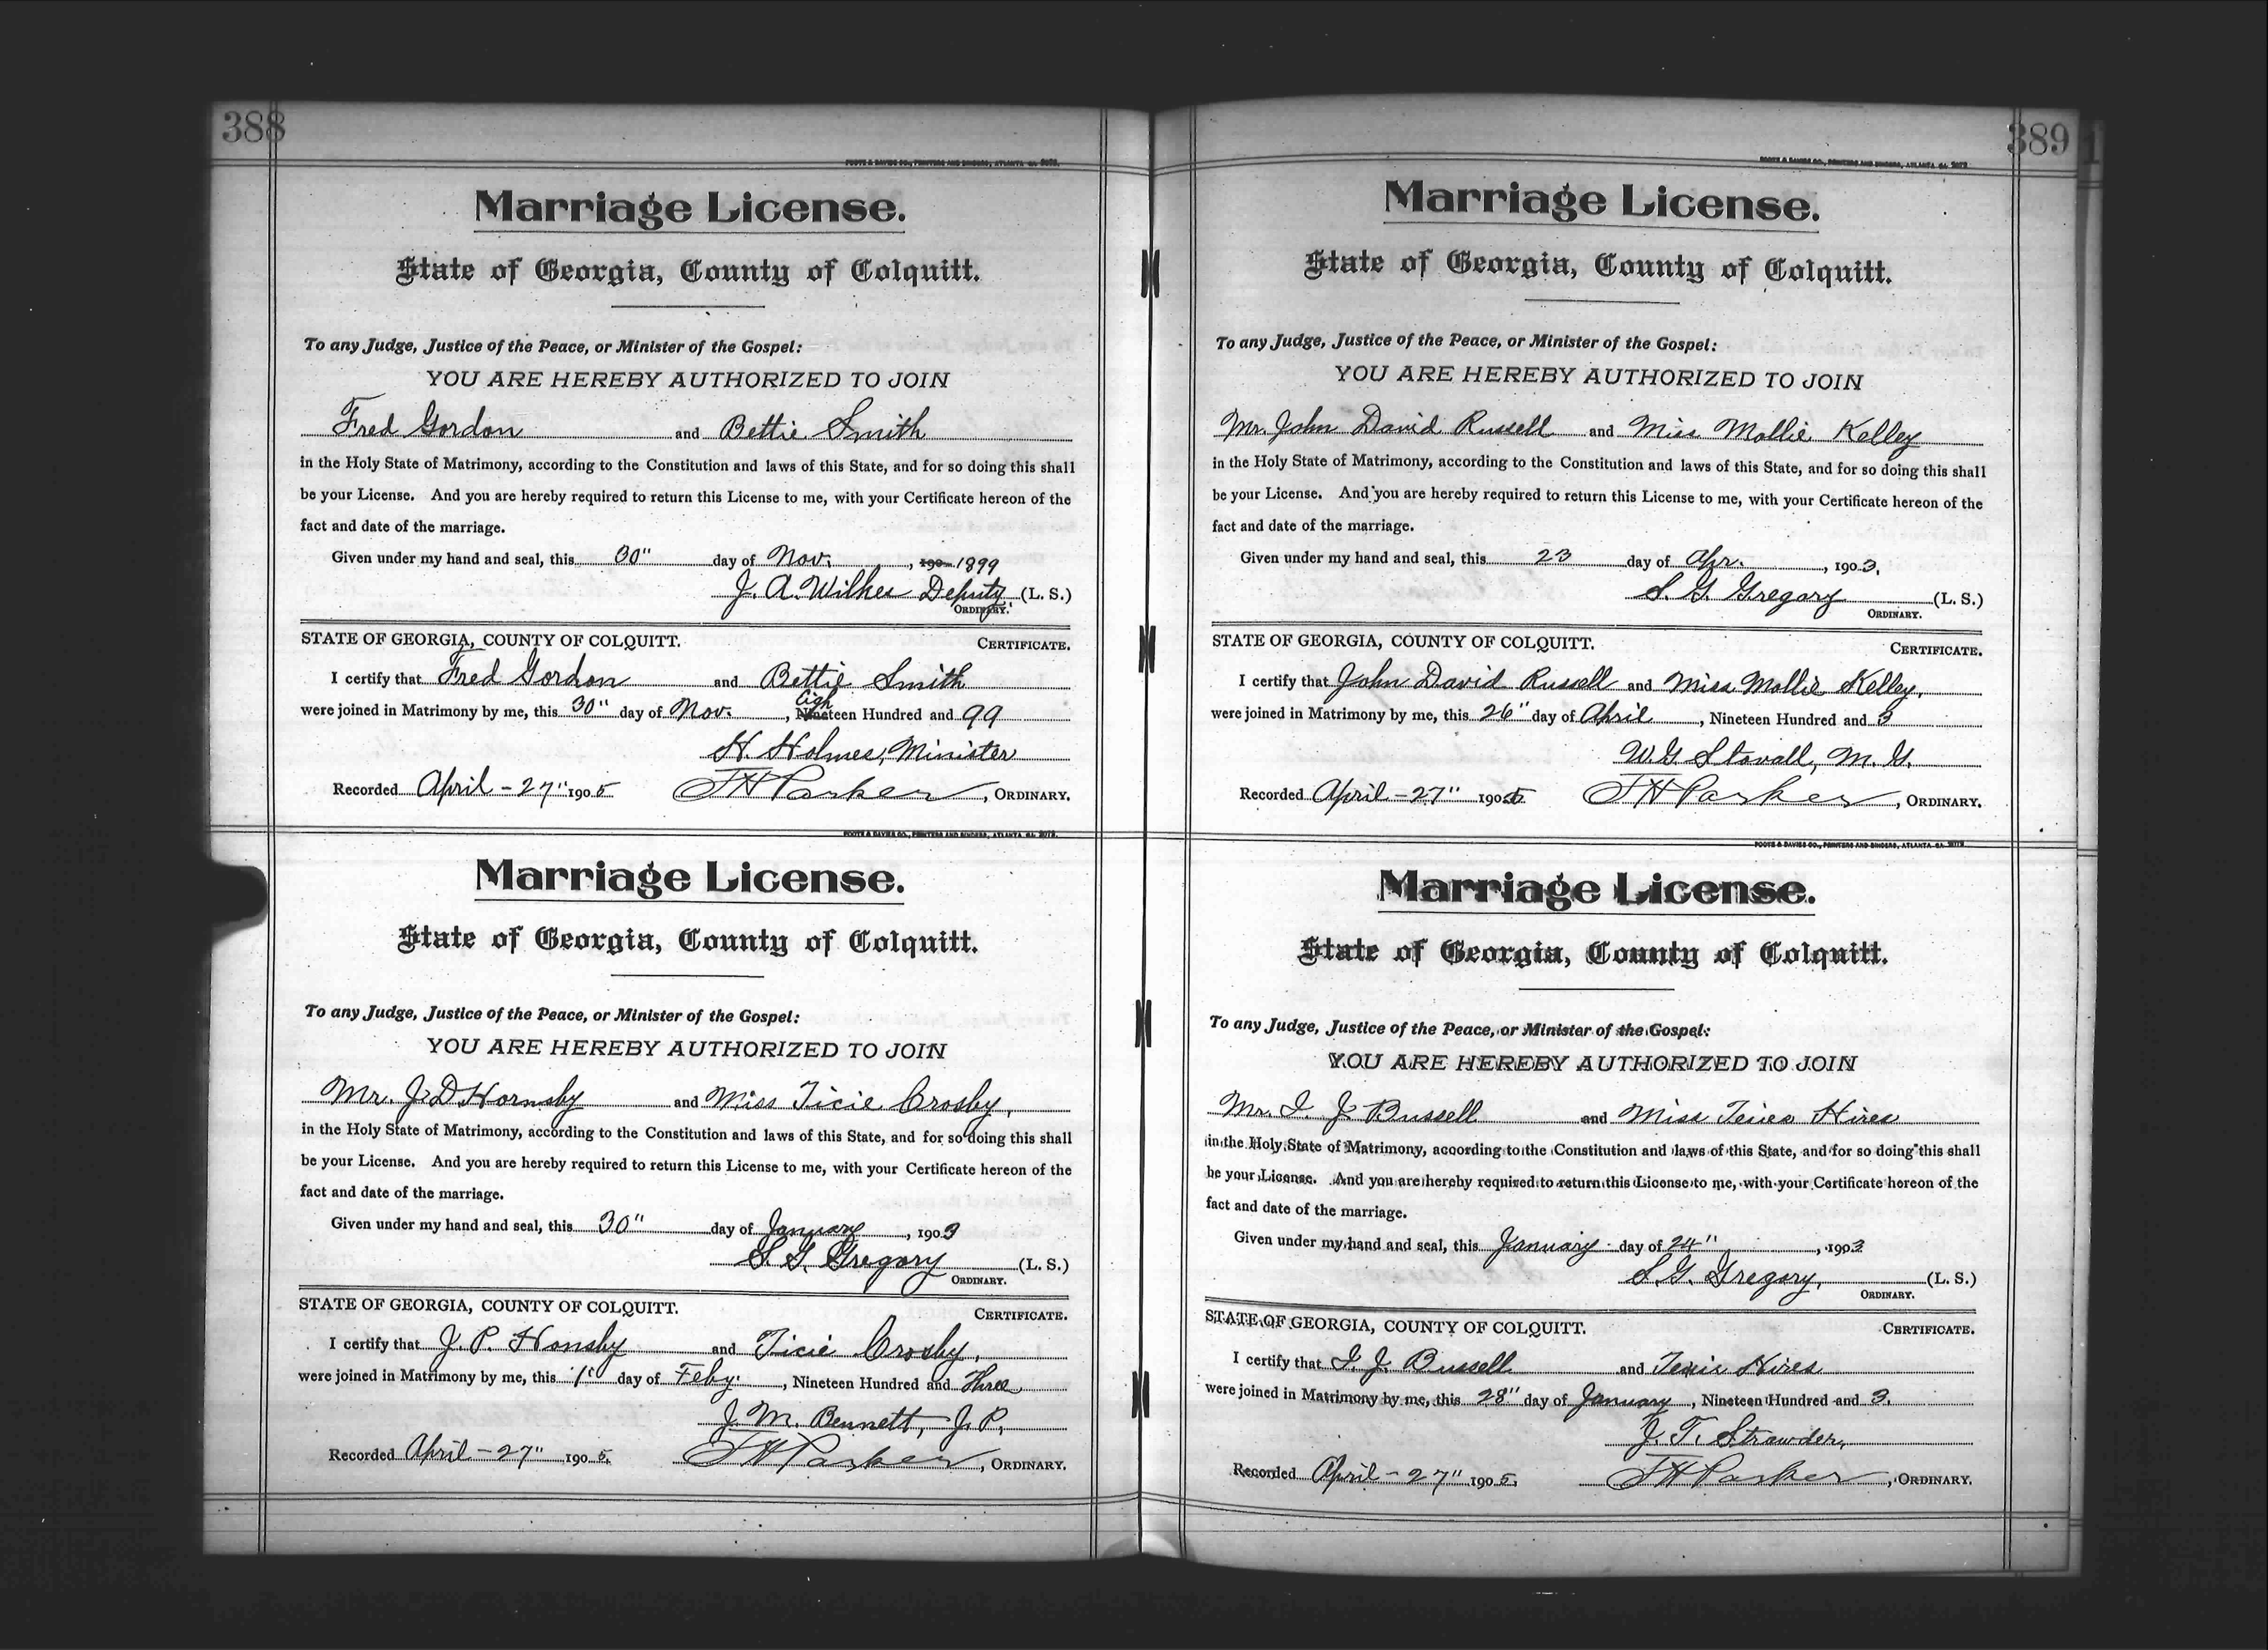 388
FOOTE & DAVIES CO., PRINTERS AND BINDERS, ATLANTA, GA.
Marriage License.
State of Georgia, County of Colquitt.
To any Judge, Justice of the Peace, or Minister of the Gospel:
YOU ARE HEREBY AUTHORIZED TO JOIN
Fred Gordon and Bettie Smith
in the Holy State of Matrimony, according to the Constitution and laws of this State, and for so doing this shall
be your License. And you are hereby required to return this License to me, with your Certificate hereon of the
fact and date of the marriage.
Given under my hand and seal, this 30" day of Nov. , 190 1899
J. A. Wilkes Deputy (L. S.)
ORDINARY.
STATE OF GEORGIA, COUNTY OF COLQUITT. CERTIFICATE.
I certify that Fred Gordon and Bettie Smith
were joined in Matrimony by me, this 30" day of Nov. , Eighteen Hundred and 99
H. Holmes, Minister
Recorded April - 27" 1905 J H Parker , ORDINARY.
FOOTE & DAVIES CO., PRINTERS AND BINDERS, ATLANTA, GA.
Marriage License.
State of Georgia, County of Colquitt.
To any Judge, Justice of the Peace, or Minister of the Gospel:
YOU ARE HEREBY AUTHORIZED TO JOIN
Mr. J. D Hornsby and Miss Ticie Crosby,
in the Holy State of Matrimony, according to the Constitution and laws of this State, and for so doing this shall
be your License. And you are hereby required to return this License to me, with your Certificate hereon of the
fact and date of the marriage.
Given under my hand and seal, this 30" day of January , 1903
S. G. Gregory (L. S.)
ORDINARY.
STATE OF GEORGIA, COUNTY OF COLQUITT. CERTIFICATE.
I certify that J. P. Honsby and Ticie Crosby,
were joined in Matrimony by me, this 1" day of Feby. , Nineteen Hundred and Three
J. M. Bennett, J. P.
Recorded April - 27" 1905. J H Parker , ORDINARY.
389
FOOTE & DAVIES CO., PRINTERS AND BINDERS, ATLANTA, GA.
Marriage License.
State of Georgia, County of Colquitt.
To any Judge, Justice of the Peace, or Minister of the Gospel:
YOU ARE HEREBY AUTHORIZED TO JOIN
Mr. John David Russell and Miss Mollie Kelley
in the Holy State of Matrimony, according to the Constitution and laws of this State, and for so doing this shall
be your License. And you are hereby required to return this License to me, with your Certificate hereon of the
fact and date of the marriage.
Given under my hand and seal, this 23 day of Apr. , 1903.
S. G. Gregory (L. S.)
ORDINARY.
STATE OF GEORGIA, COUNTY OF COLQUITT. CERTIFICATE.
I certify that John David Russell and Miss Mollie Kelley,
were joined in Matrimony by me, this 26" day of April , Nineteen Hundred and 3
W. G. Stovall, M. G.
Recorded April - 27" 1905 J H Parker , ORDINARY.
FOOTE & DAVIES CO., PRINTERS AND BINDERS, ATLANTA, GA.
Marriage License.
State of Georgia, County of Colquitt.
To any Judge, Justice of the Peace, or Minister of the Gospel:
YOU ARE HEREBY AUTHORIZED TO JOIN
Mr. I. J. Bussell and Miss Hires
in the Holy State of Matrimony, according to the Constitution and laws of this State, and for so doing this shall
be your License. And you are hereby required to return this License to me, with your Certificate hereon of the
fact and date of the marriage.
Given under my hand and seal, this January day of 24" , 1903
S. G. Gregory, (L. S.)
ORDINARY.
STATE OF GEORGIA, COUNTY OF COLQUITT. CERTIFICATE.
I certify that I. J. Bussell and Hires
were joined in Matrimony by me, this 28" day of January , Nineteen Hundred and 3.
J. T. Strawder,
Recorded April - 27" 1905, J H Parker , ORDINARY.